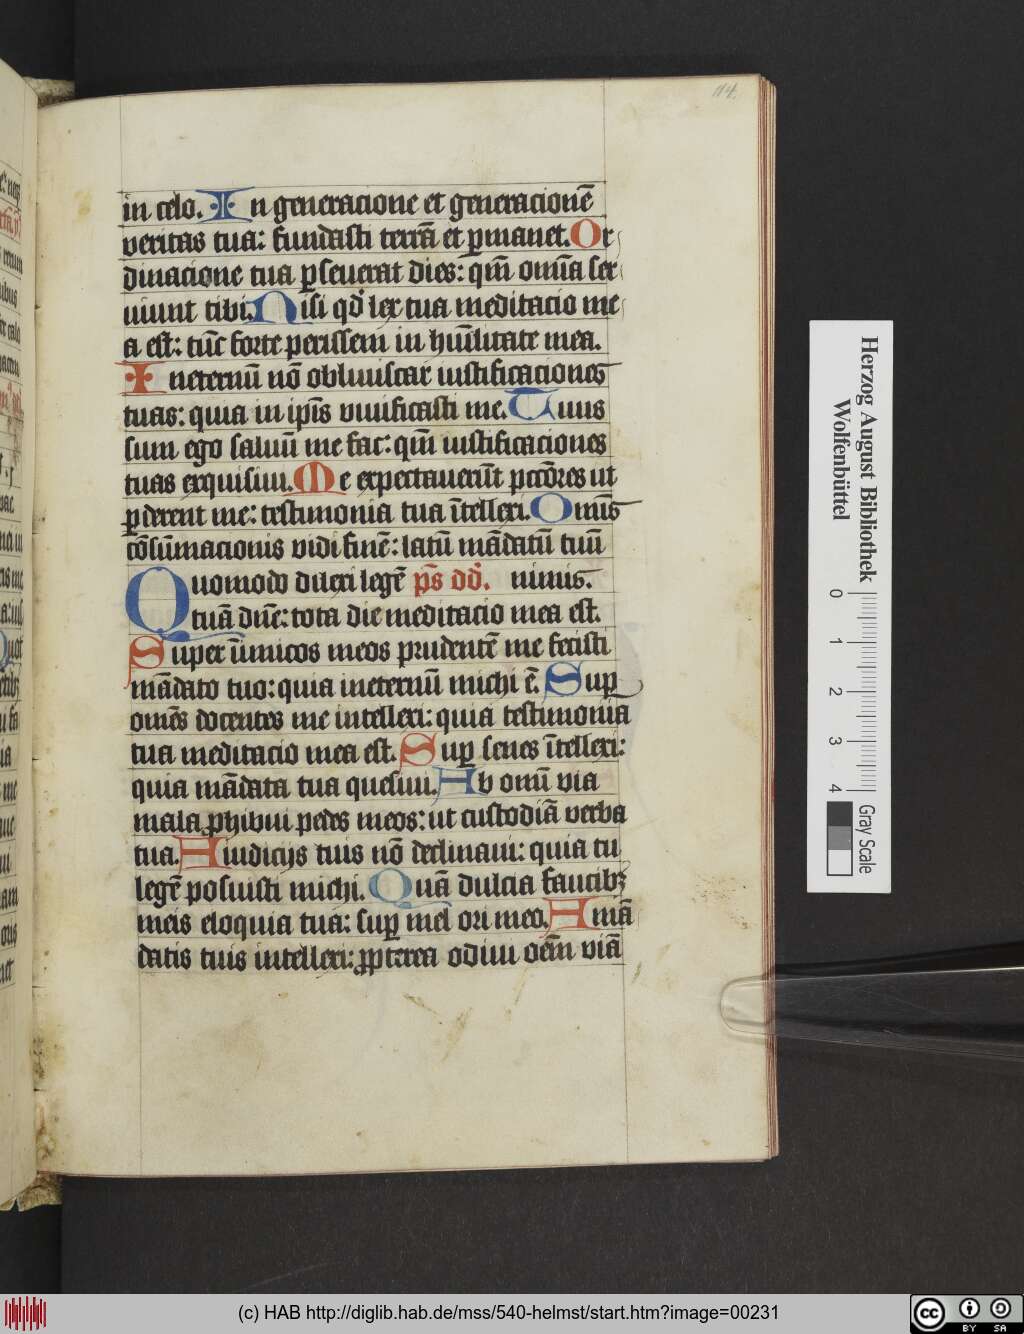 114.
in celo. In generacione et generacionē
veritas tua: fundasti terrā et ꝑmanet. Or
dinacione tua ꝑseuerat dies: qm̄ omīa ser
uiunt tibi. Nisi qđ lex tua meditacio me
a est: tūc forte perissem in hūilitate mea.
Ineternū nō obliuiscar iustificaciones
tuas: quia in ip̄is viuificasti me. Tuus
sum ego saluū me fac: qm̄ iustificaciones
tuas exquisiui. Me expectauerūt pccōres ut
ꝑderent me: testimonia tua ītellexi. Omīs
cōsūmacionis vidi finē: latū mādatū tuū
Quomodo dilexi legē p̄s dđ. nimis.
tuā dn̄e: tota die meditacio mea est.
Super īimicos meos prudentē me fecisti
mādato tuo: quia ineternū michi ē. Suꝑ
omēs docentes me intellexi: quia testimonia
tua meditacio mea est. Suꝑ senes ītellexi:
quia mādata tua quesiui. Ab omī via
mala ꝓhibui pedes meos: ut custodiā verba
tua. A iudicijs tuis nō declinaui: quia tu
legē posuisti michi. Quā dulcia faucibꝫ
meis eloquia tua: suꝑ mel ori meo. A mā
datis tuis intellexi: ꝓpterea odiui oēm viā
Herzog August Bibliothek
Wolfenbüttel
0 1 2 3 4
Gray Scale
(c) HAB http://diglib.hab.de/mss/540-helmst/start.htm?image=00231
cc BY SA